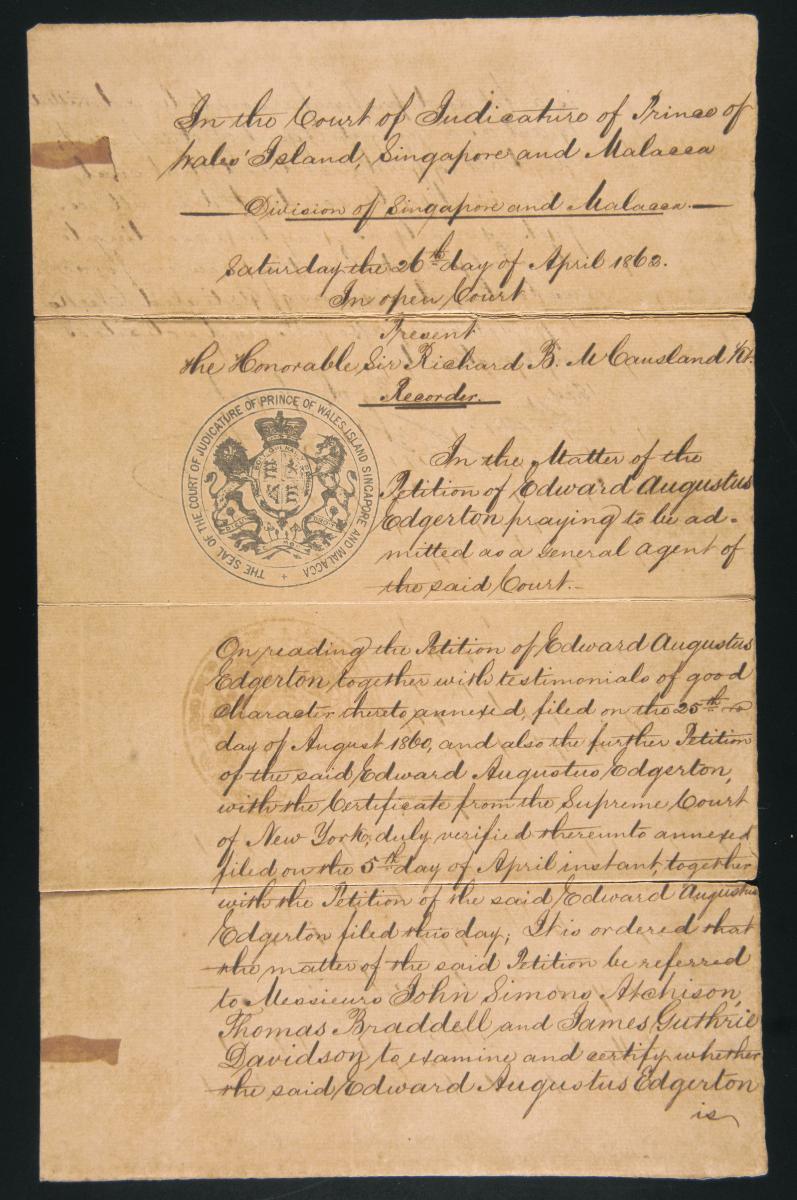 In the Court of Judicature of Prince of
Wales' Island, Singapore and Malacca
Division of Singapore and Malacca.
Saturday the 26th day of April 1862.
In open Court
Present
the Honorable Sir Richard B. McCausland Kt.
Recorder.
THE SEAL OF THE COURT OF JUDICATURE OF PRINCE OF WALES ISLAND SINGAPORE AND MALACCA
In the Matter of the
Petition of Edward Augustus
Edgerton praying to be ad-
mitted as a General Agent of
the said Court.
On reading the Petition of Edward Augustus
Edgerton together with testimonials of good
Character thereto annexed, filed on the 25th
day of August 1860, and also the further Petition
of the said Edward Augustus Edgerton,
with the Certificate from the Supreme Court
of New York, duly verified thereunto annexed
filed on the 5th day of April instant, together
with the Petition of the said Edward Augustus
Edgerton filed this day; It is ordered that
the matter of the said Petition be referred
to Messieurs John Simons Atchison,
Thomas Braddell and James Guthrie
Davidson to examine and certify whether
the said Edward Augustus Edgerton
is